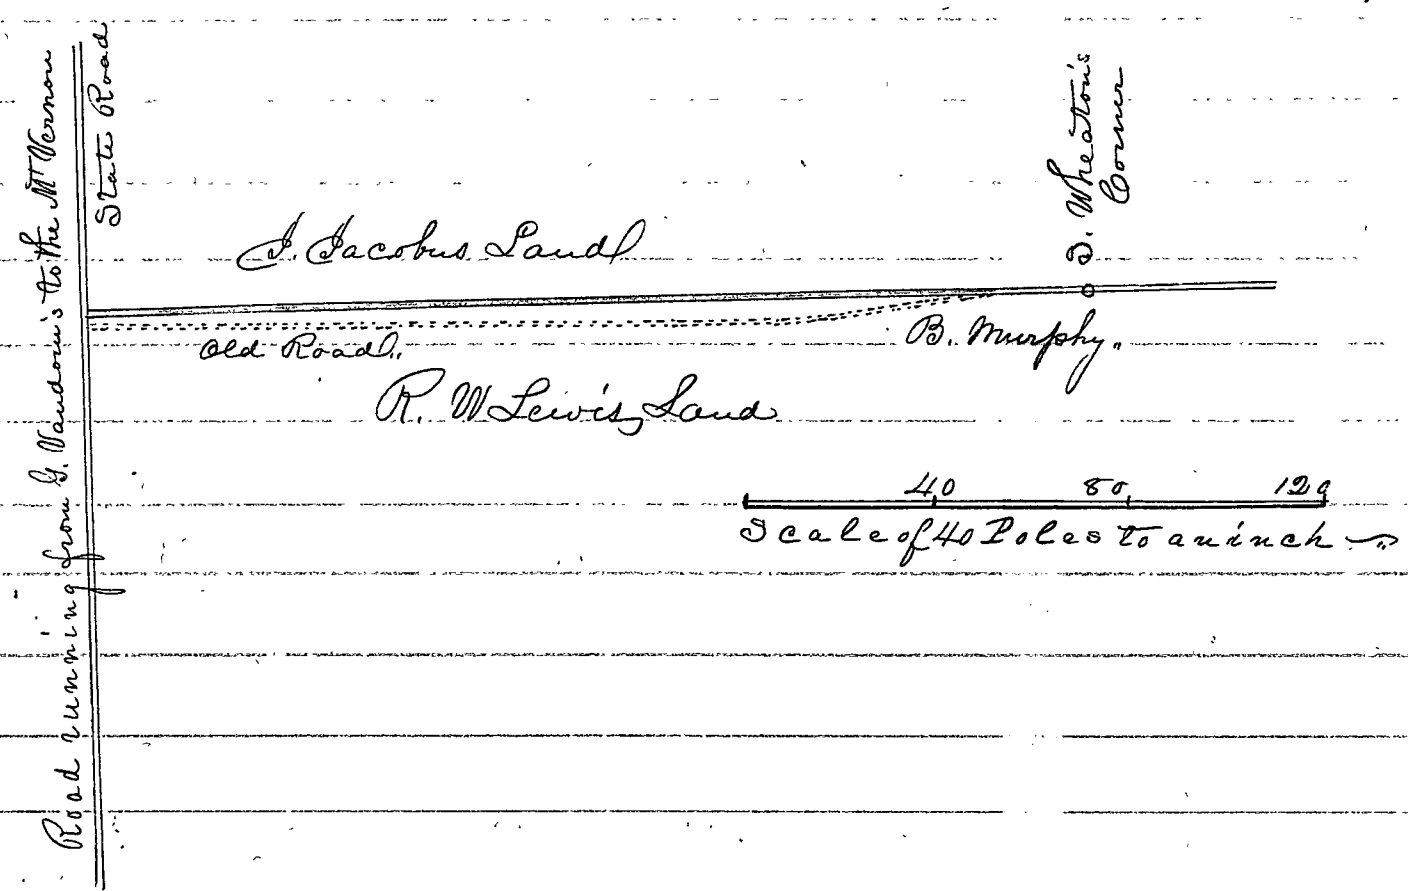 Road running from G. Vandorn's to the Mt Vernon
State Road
J. Jacobus Land
B. Wheaton's
Corner
Old Road.
B. Murphy.
R. W Lewis, Land
40 80 120
Scale of 40 Poles to an inch